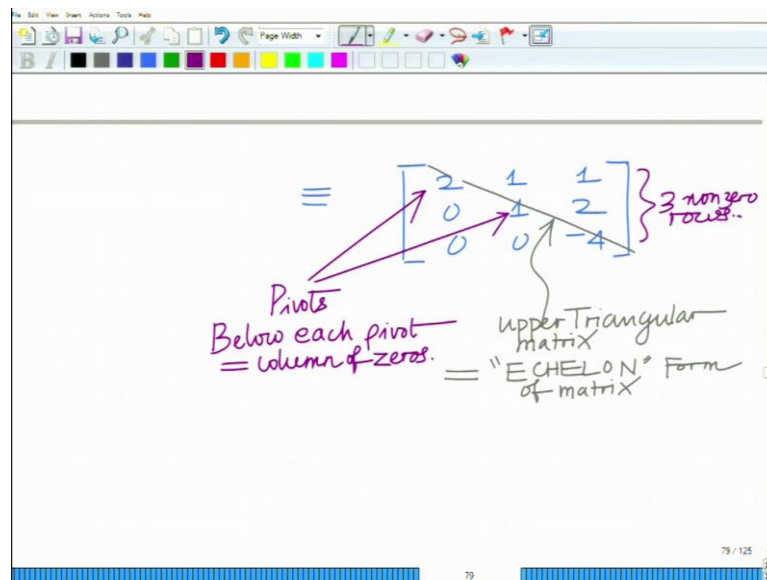 File Edit View Insert Actions Tools Help
Page Width
B I
≡ [ 2 1 1
0 1 2
0 0 -4 ]
} 3 nonzero
rows..
Pivots
Below each pivot
= column of zeros.
upper Triangular
matrix
= "ECHELON" Form
of matrix
79 / 125
79